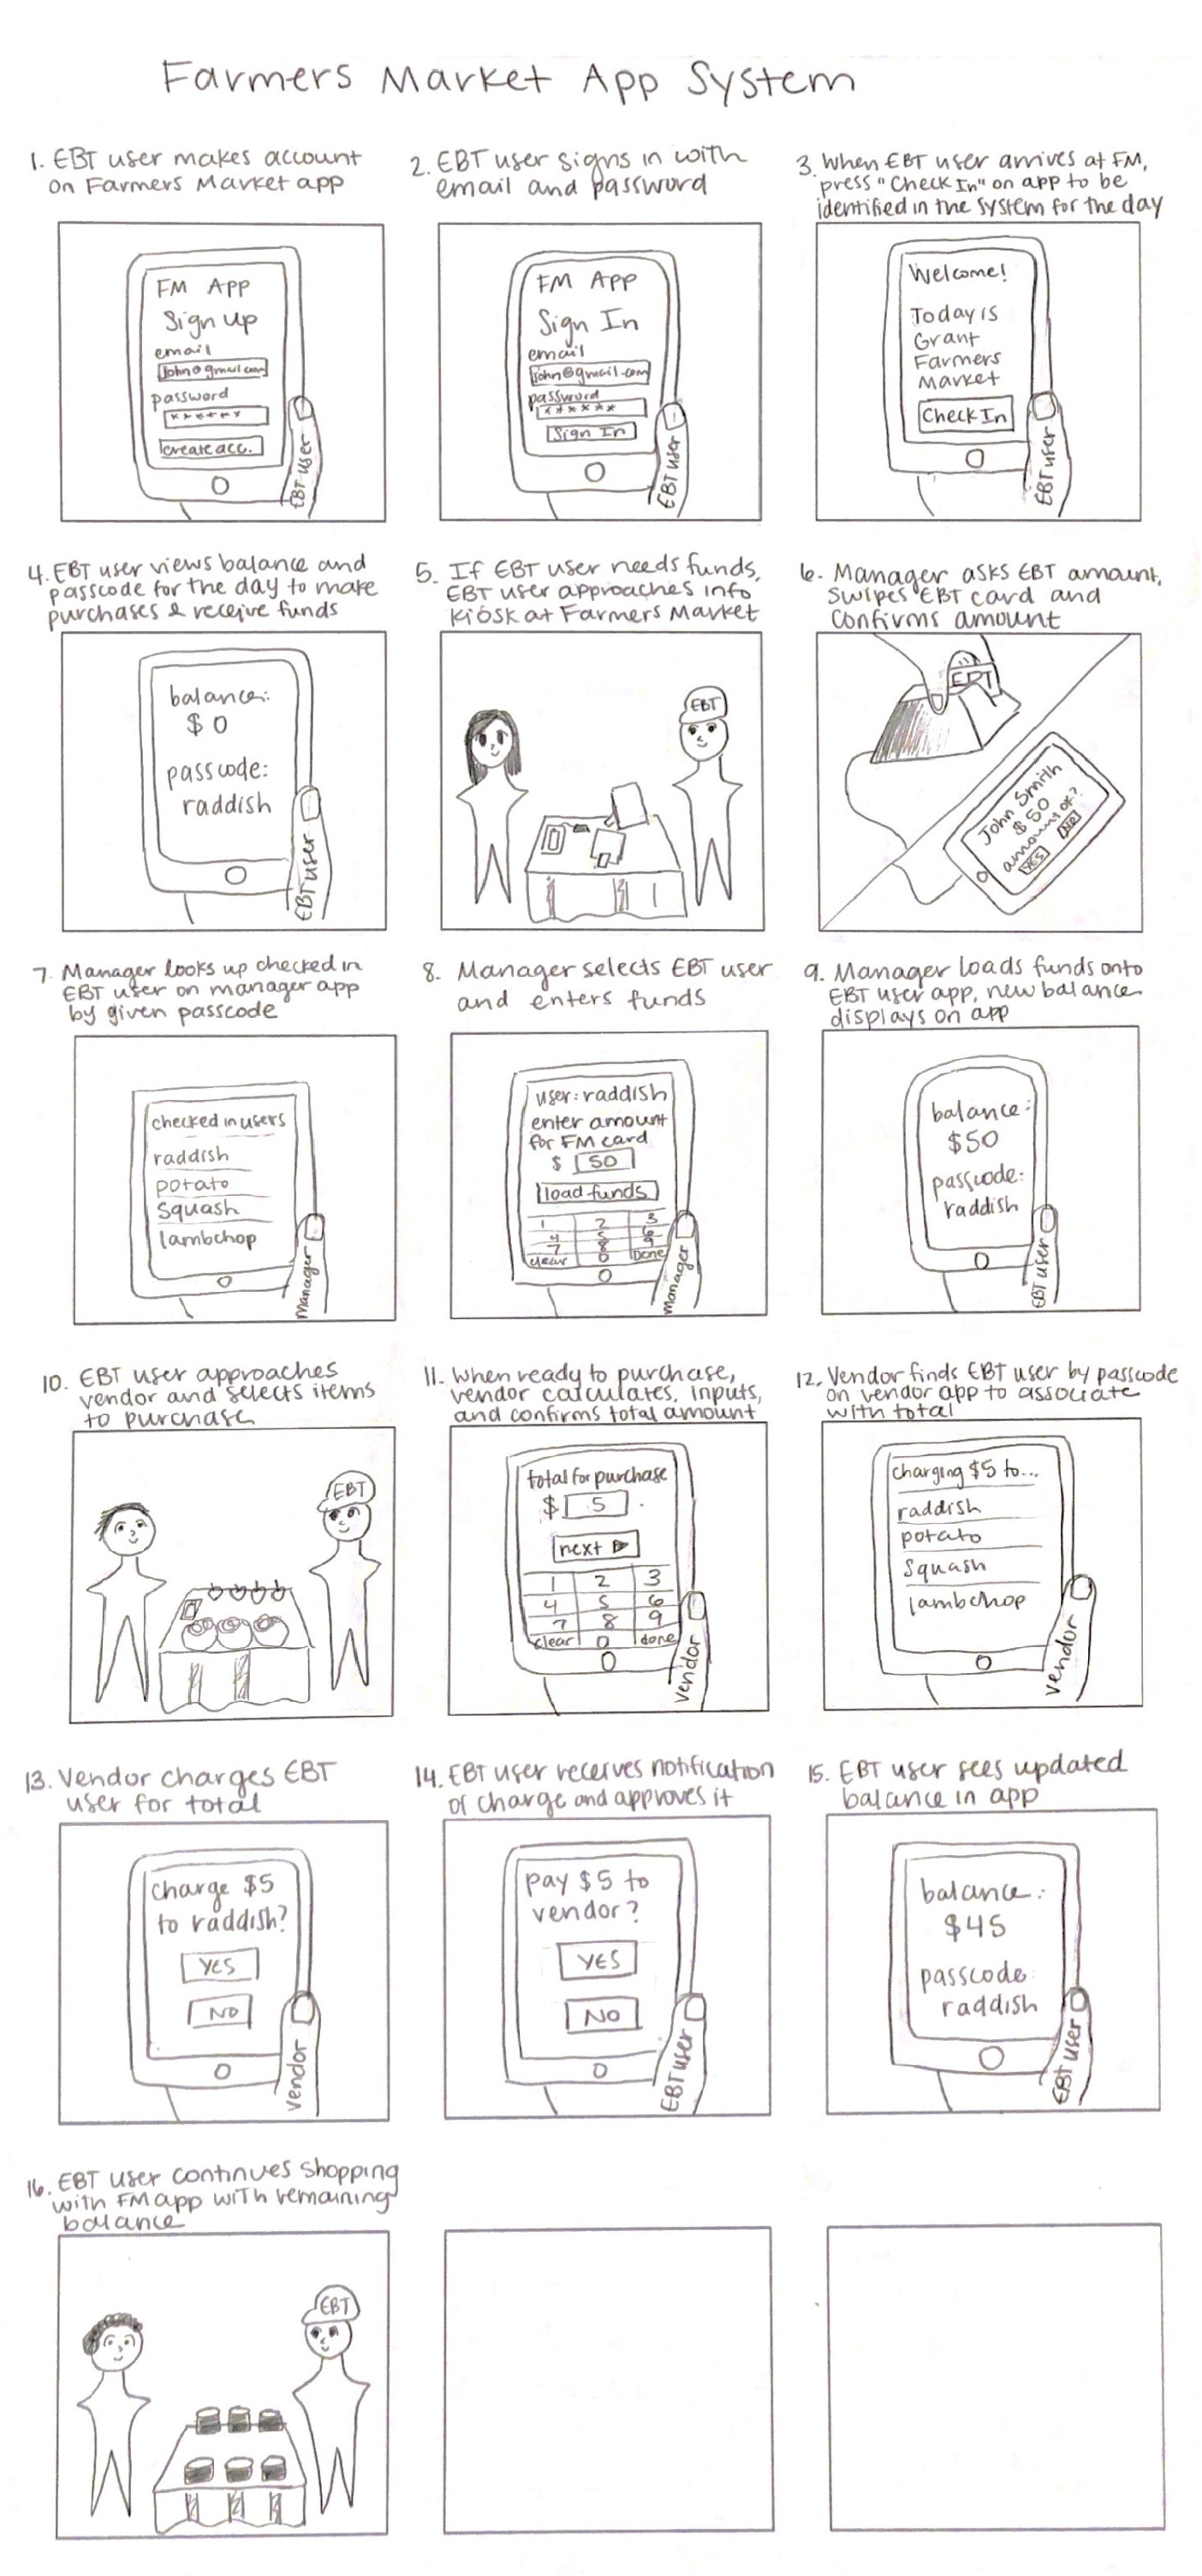 Farmers Market App System
1. EBT user makes account
on Farmers Market app
FM APP
Sign Up
email
john@gmail.com
password
******
create acc.
EBT user
2. EBT user signs in with
email and password
FM APP
Sign In
email
john@gmail.com
password
******
Sign In
EBT user
3. When EBT user arrives at FM,
press "Check In" on app to be
identified in the system for the day
Welcome!
Today is
Grant
Farmers
Market
Check In
EBT user
4. EBT user views balance and
passcode for the day to make
purchases & receive funds
balance:
$0
passcode:
raddish
EBT user
5. If EBT user needs funds,
EBT user approaches info
kiosk at Farmers Market
EBT
6. Manager asks EBT amount,
swipes EBT card and
confirms amount
EBT
John Smith
$50
amount ok?
YES NO
7. Manager looks up checked in
EBT user on manager app
by given passcode
checked in users
raddish
potato
squash
lambchop
Manager
8. Manager selects EBT user
and enters funds
user: raddish
enter amount
for FM card
$ 50
load funds
1 2 3
4 5 6
7 8 9
clear 0 Done
Manager
9. Manager loads funds onto
EBT user app, new balance
displays on app
balance:
$50
passcode:
raddish
EBT user
10. EBT user approaches
vendor and selects items
to purchase
EBT
11. When ready to purchase,
vendor calculates, inputs,
and confirms total amount
total for purchase
$ 5
next
1 2 3
4 5 6
7 8 9
clear 0 done
vendor
12. Vendor finds EBT user by passcode
on vendor app to associate
with total
charging $5 to...
raddish
potato
squash
lambchop
vendor
13. Vendor charges EBT
user for total
charge $5
to raddish?
YES
NO
vendor
14. EBT user receives notification
of charge and approves it
pay $5 to
vendor?
YES
NO
EBT user
15. EBT user sees updated
balance in app
balance:
$45
passcode
raddish
EBT user
16. EBT user continues shopping
with FM app with remaining
balance
EBT